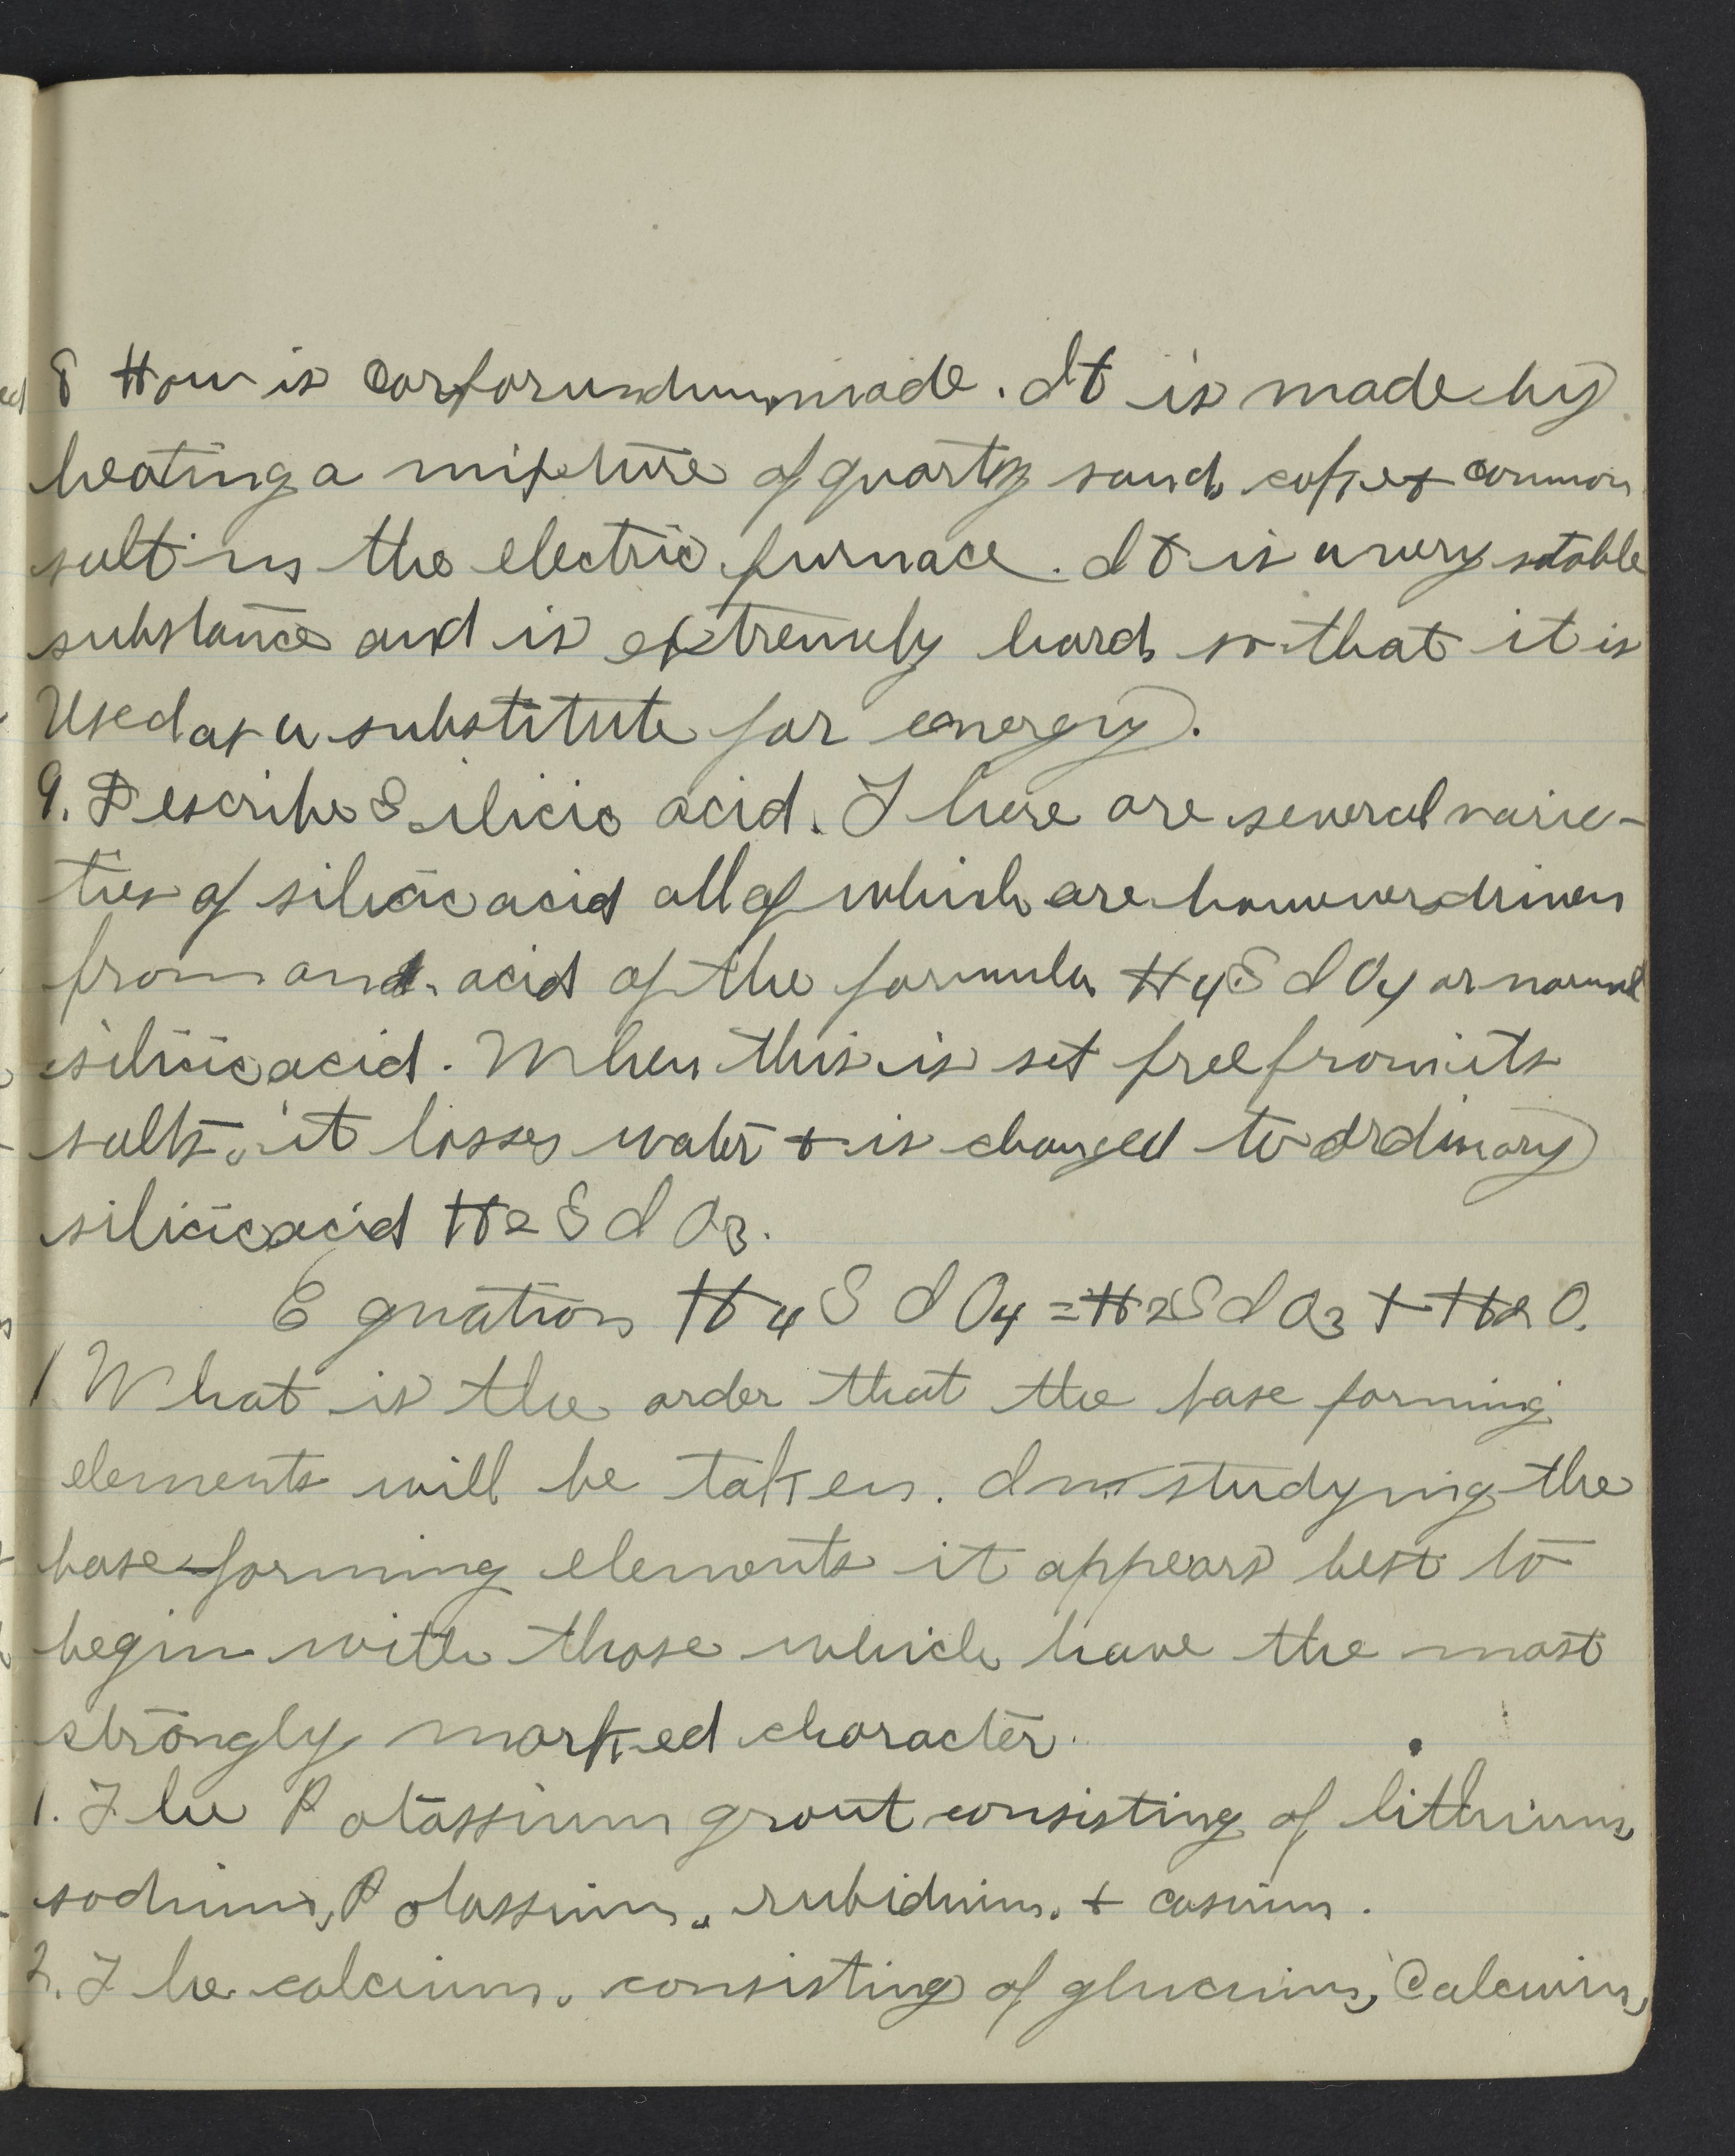 8 How is Carforundum made. It is made by
heating a mixture of quartz sand, coke + common
salt in the electric furnace. It is a very stable
substance and is extremely hard, so that it is
Used as a substitute for energy.
9. Describe Silicic acid. There are several varie-
ties of silicic acid all of which are however driven
from and acid of the formula H4SIO4 or normal
silicic acid. When this is set free from its
salts, it losses water + is changed to ordinary
silicic acid H2SIO3.
Equation H4SIO4 = H2SIO3 + H2O.
1 What is the order that the base forming
elements will be taken. In studying the
base-forming elements it appears best to
begin with those which have the most
strongly marked character.
1. The Potassium grout consisting of lithium,
sodium, Potassium, rubidium, + casium.
2. The calcium, consisting of glucium, Calcium,